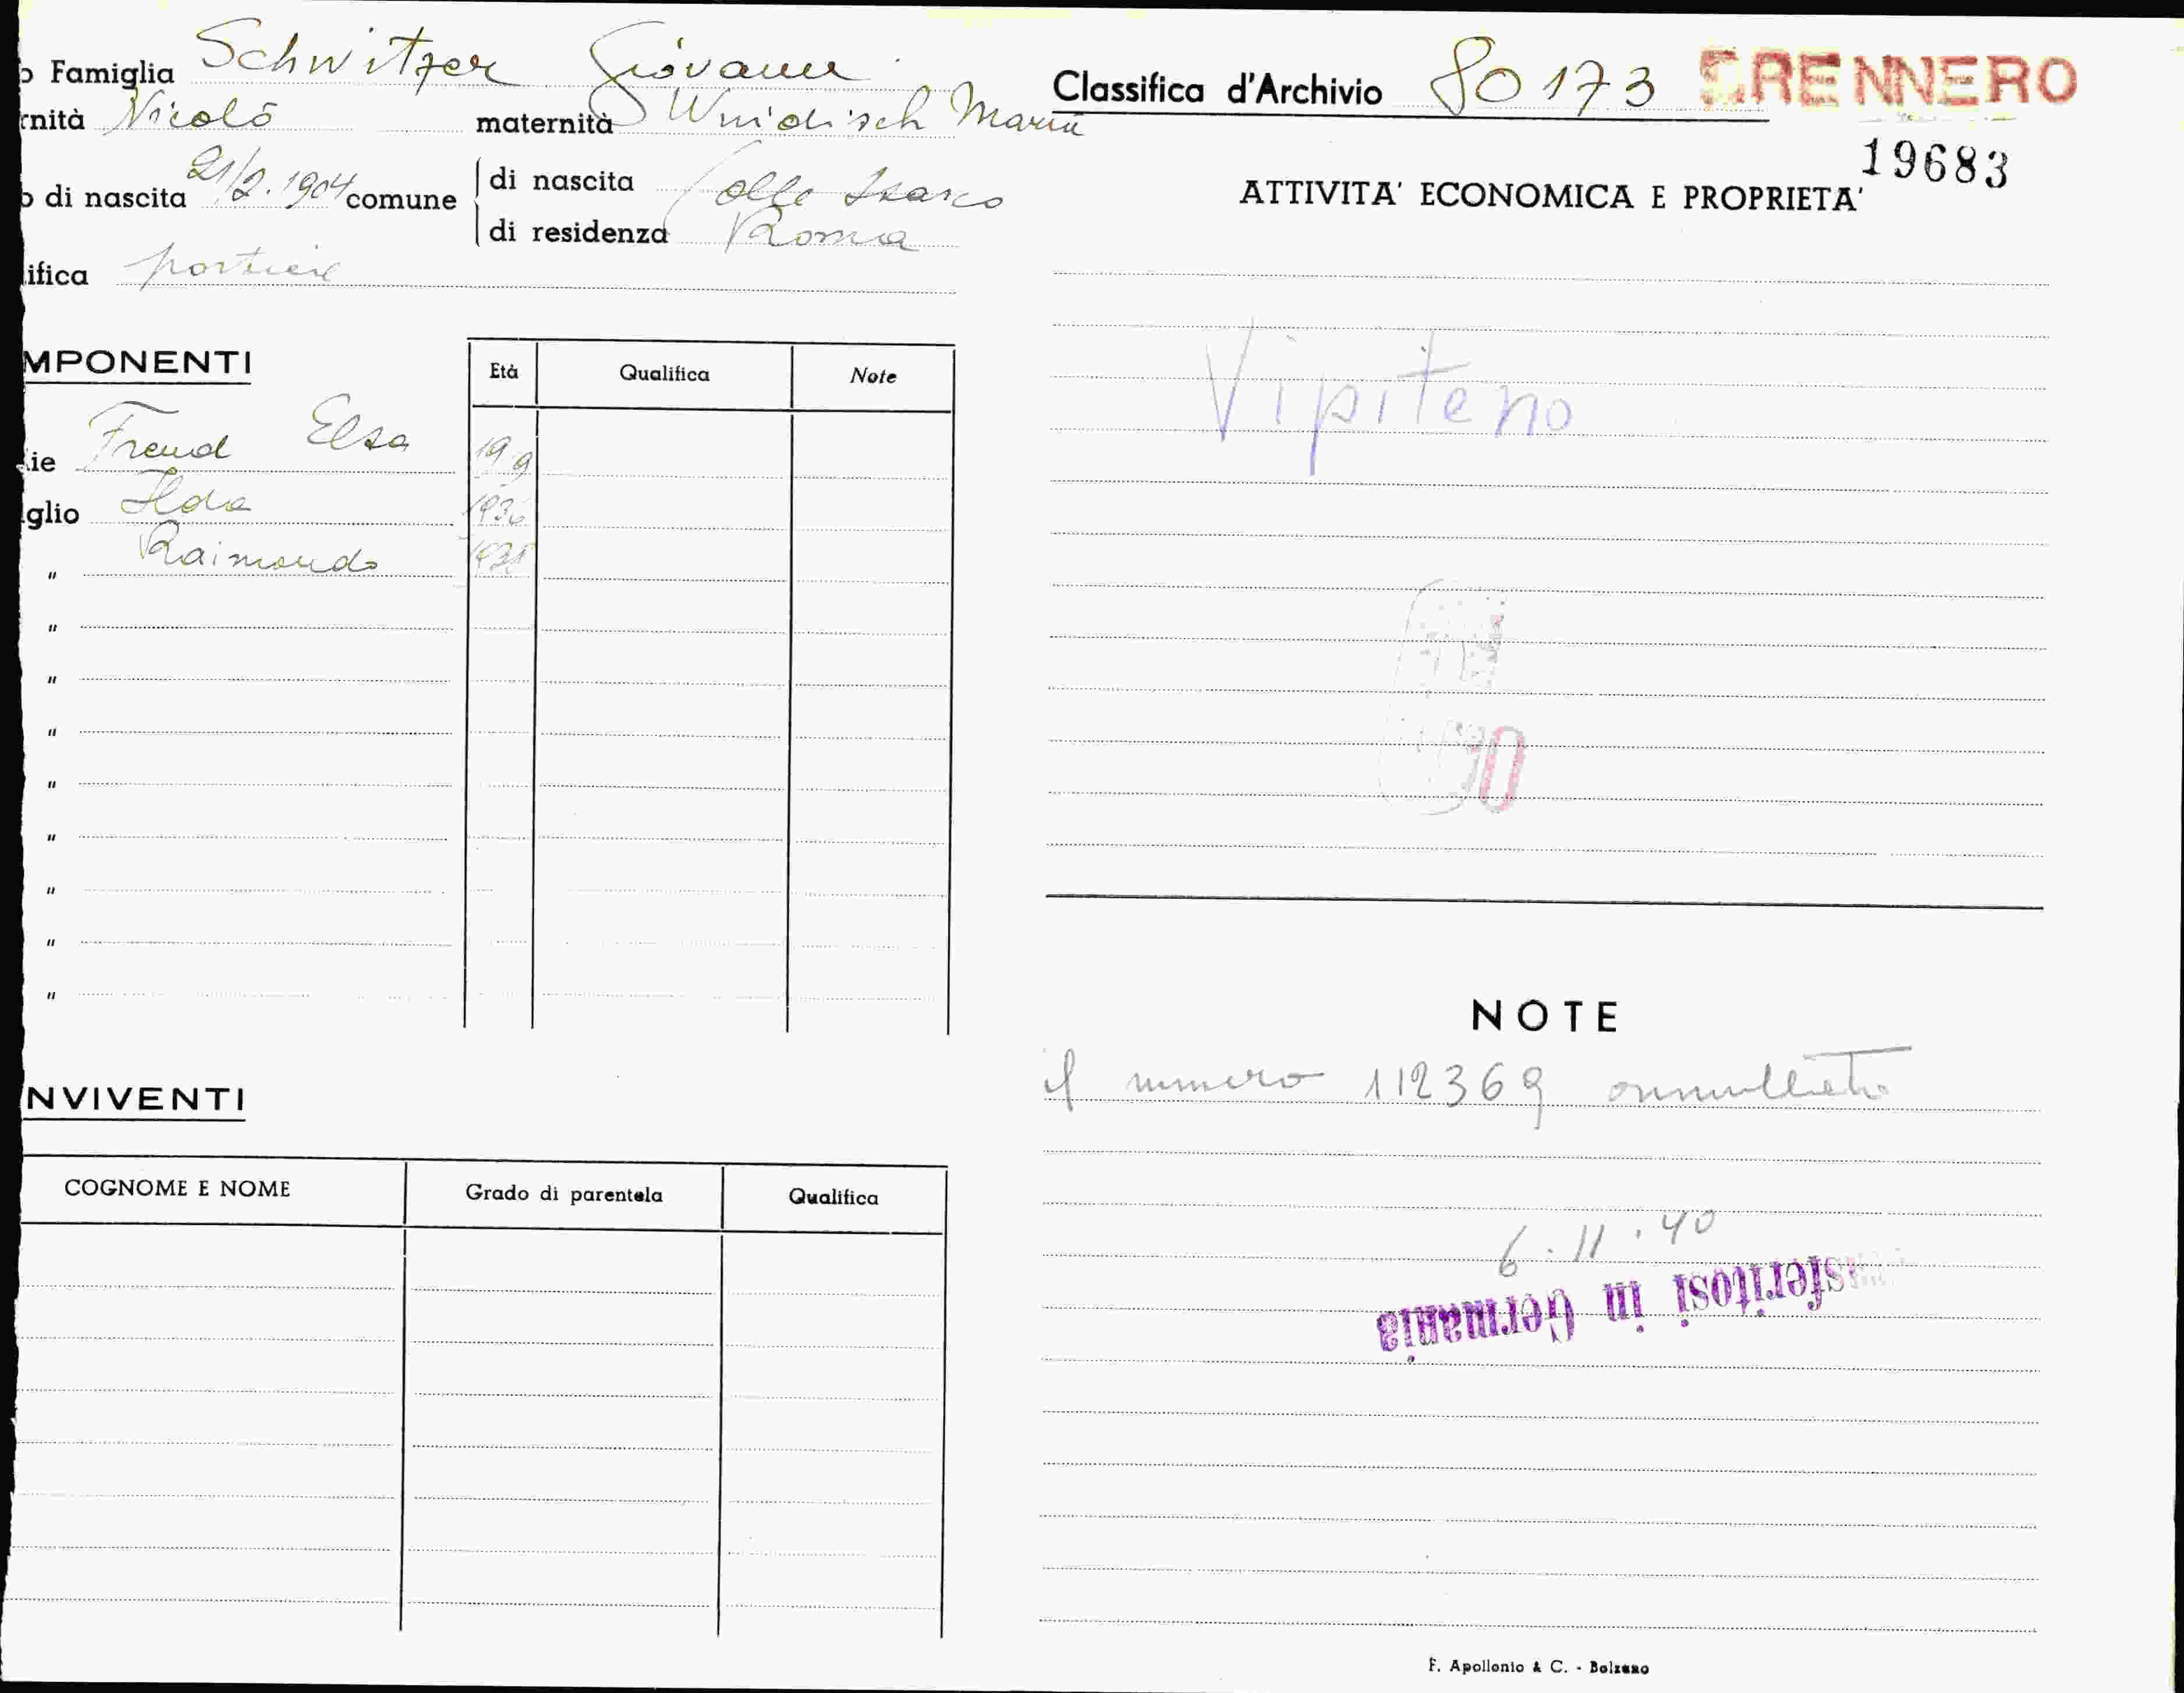 o Famiglia Schwitzer Giovanni
rnità Nicolò maternità Windisch Maria
o di nascita 21/2.1904 comune di nascita Colle Isarco
di residenza Roma
ifica portiere
MPONENTI Età Qualifica Note
ie Freud Elsa 19 9
glio Ilda 1936
" Raimondo
"
"
"
"
"
"
"
"
NVIVENTI
COGNOME E NOME Grado di parentela Qualifica
Classifica d'Archivio 80173 BRENNERO
19683
ATTIVITA' ECONOMICA E PROPRIETA'
Vipiteno
NOTE
il numero 112369 annullato
6.11.40
sferitosi in Germania
F. Apollonio & C. - Bolzano